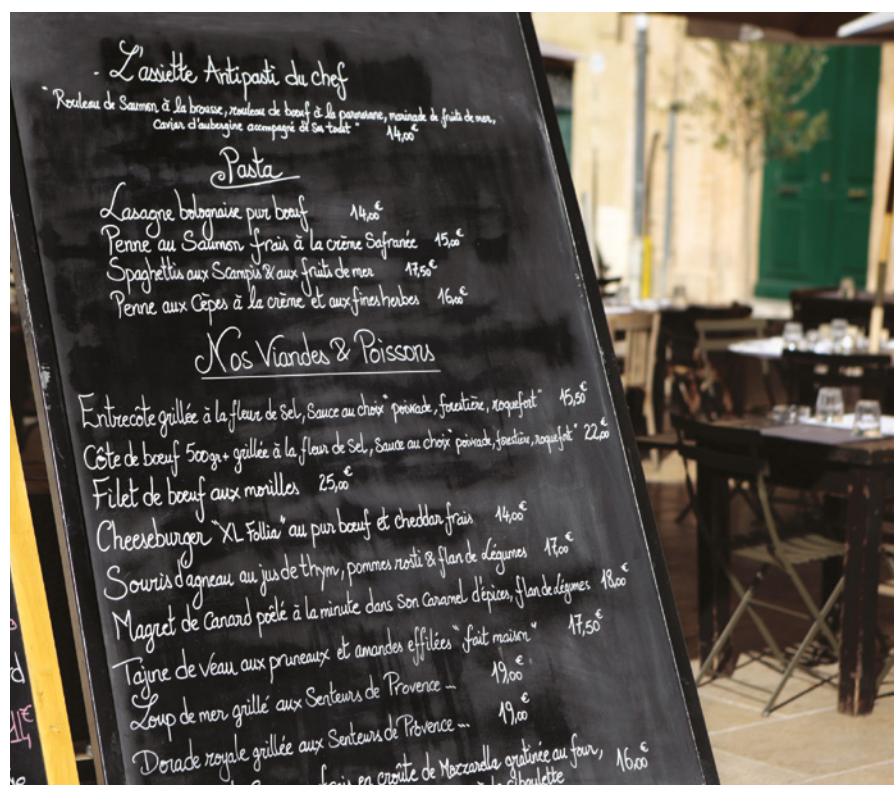 - L'assiette Antipasti du chef
"Rouleau de Saumon à la brousse, rouleau de bœuf à la parmesane, marinade de fruits de mer,
Caviar d'aubergine accompagné de Son toast" 14,00€
Pasta
Lasagne bolognaise pur bœuf 14,00€
Penne au Saumon frais à la crème Safranée 15,00€
Spaghettis aux Scampis & aux fruits de mer 17,50€
Penne aux Cèpes à la crème et aux fines herbes 16,00€
Nos Viandes & Poissons
Entrecôte grillée à la fleur de Sel, Sauce au choix "poivrade, forestière, roquefort" 15,50€
Côte de bœuf 500gr+ grillée à la fleur de Sel, Sauce au choix "poivrade, forestière, roquefort" 22,00€
Filet de bœuf aux morilles 25,00€
Cheeseburger "XL Follia" au pur bœuf et cheddar frais 14,00€
Souris d'agneau au jus de thym, pommes rosti & flan de Légumes 17,00€
Magret de Canard poêlé à la minute dans Son Caramel d'épices, flan de Légumes 18,00€
Tajine de Veau aux pruneaux et amandes effilées "fait maison" 17,50€
Loup de mer grillé aux Senteurs de Provence ... 19,00€
Dorade royale grillée aux Senteurs de Provence ... 19,00€
frais en croûte de Mozzarella gratinée au four, 16,00€
ciboulette